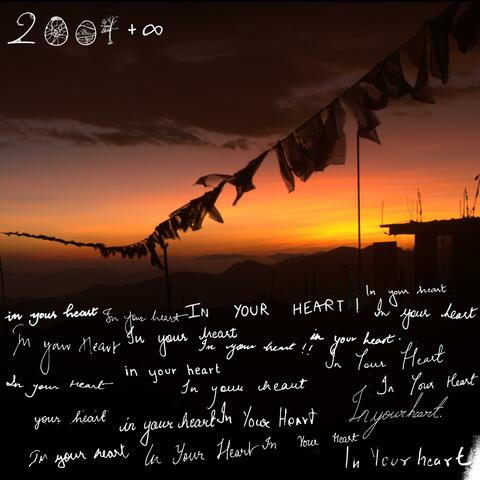 2004 + ∞
In your heart
in your heart In your heart IN YOUR HEART! In your heart
In your Heart In your heart In your heart!! in your heart.
In Your Heart
In your heart in your heart In your heart In Your Heart
your heart in your heart In Your Heart Inyourheart.
In your heart In Your Heart In Your Heart In Your heart